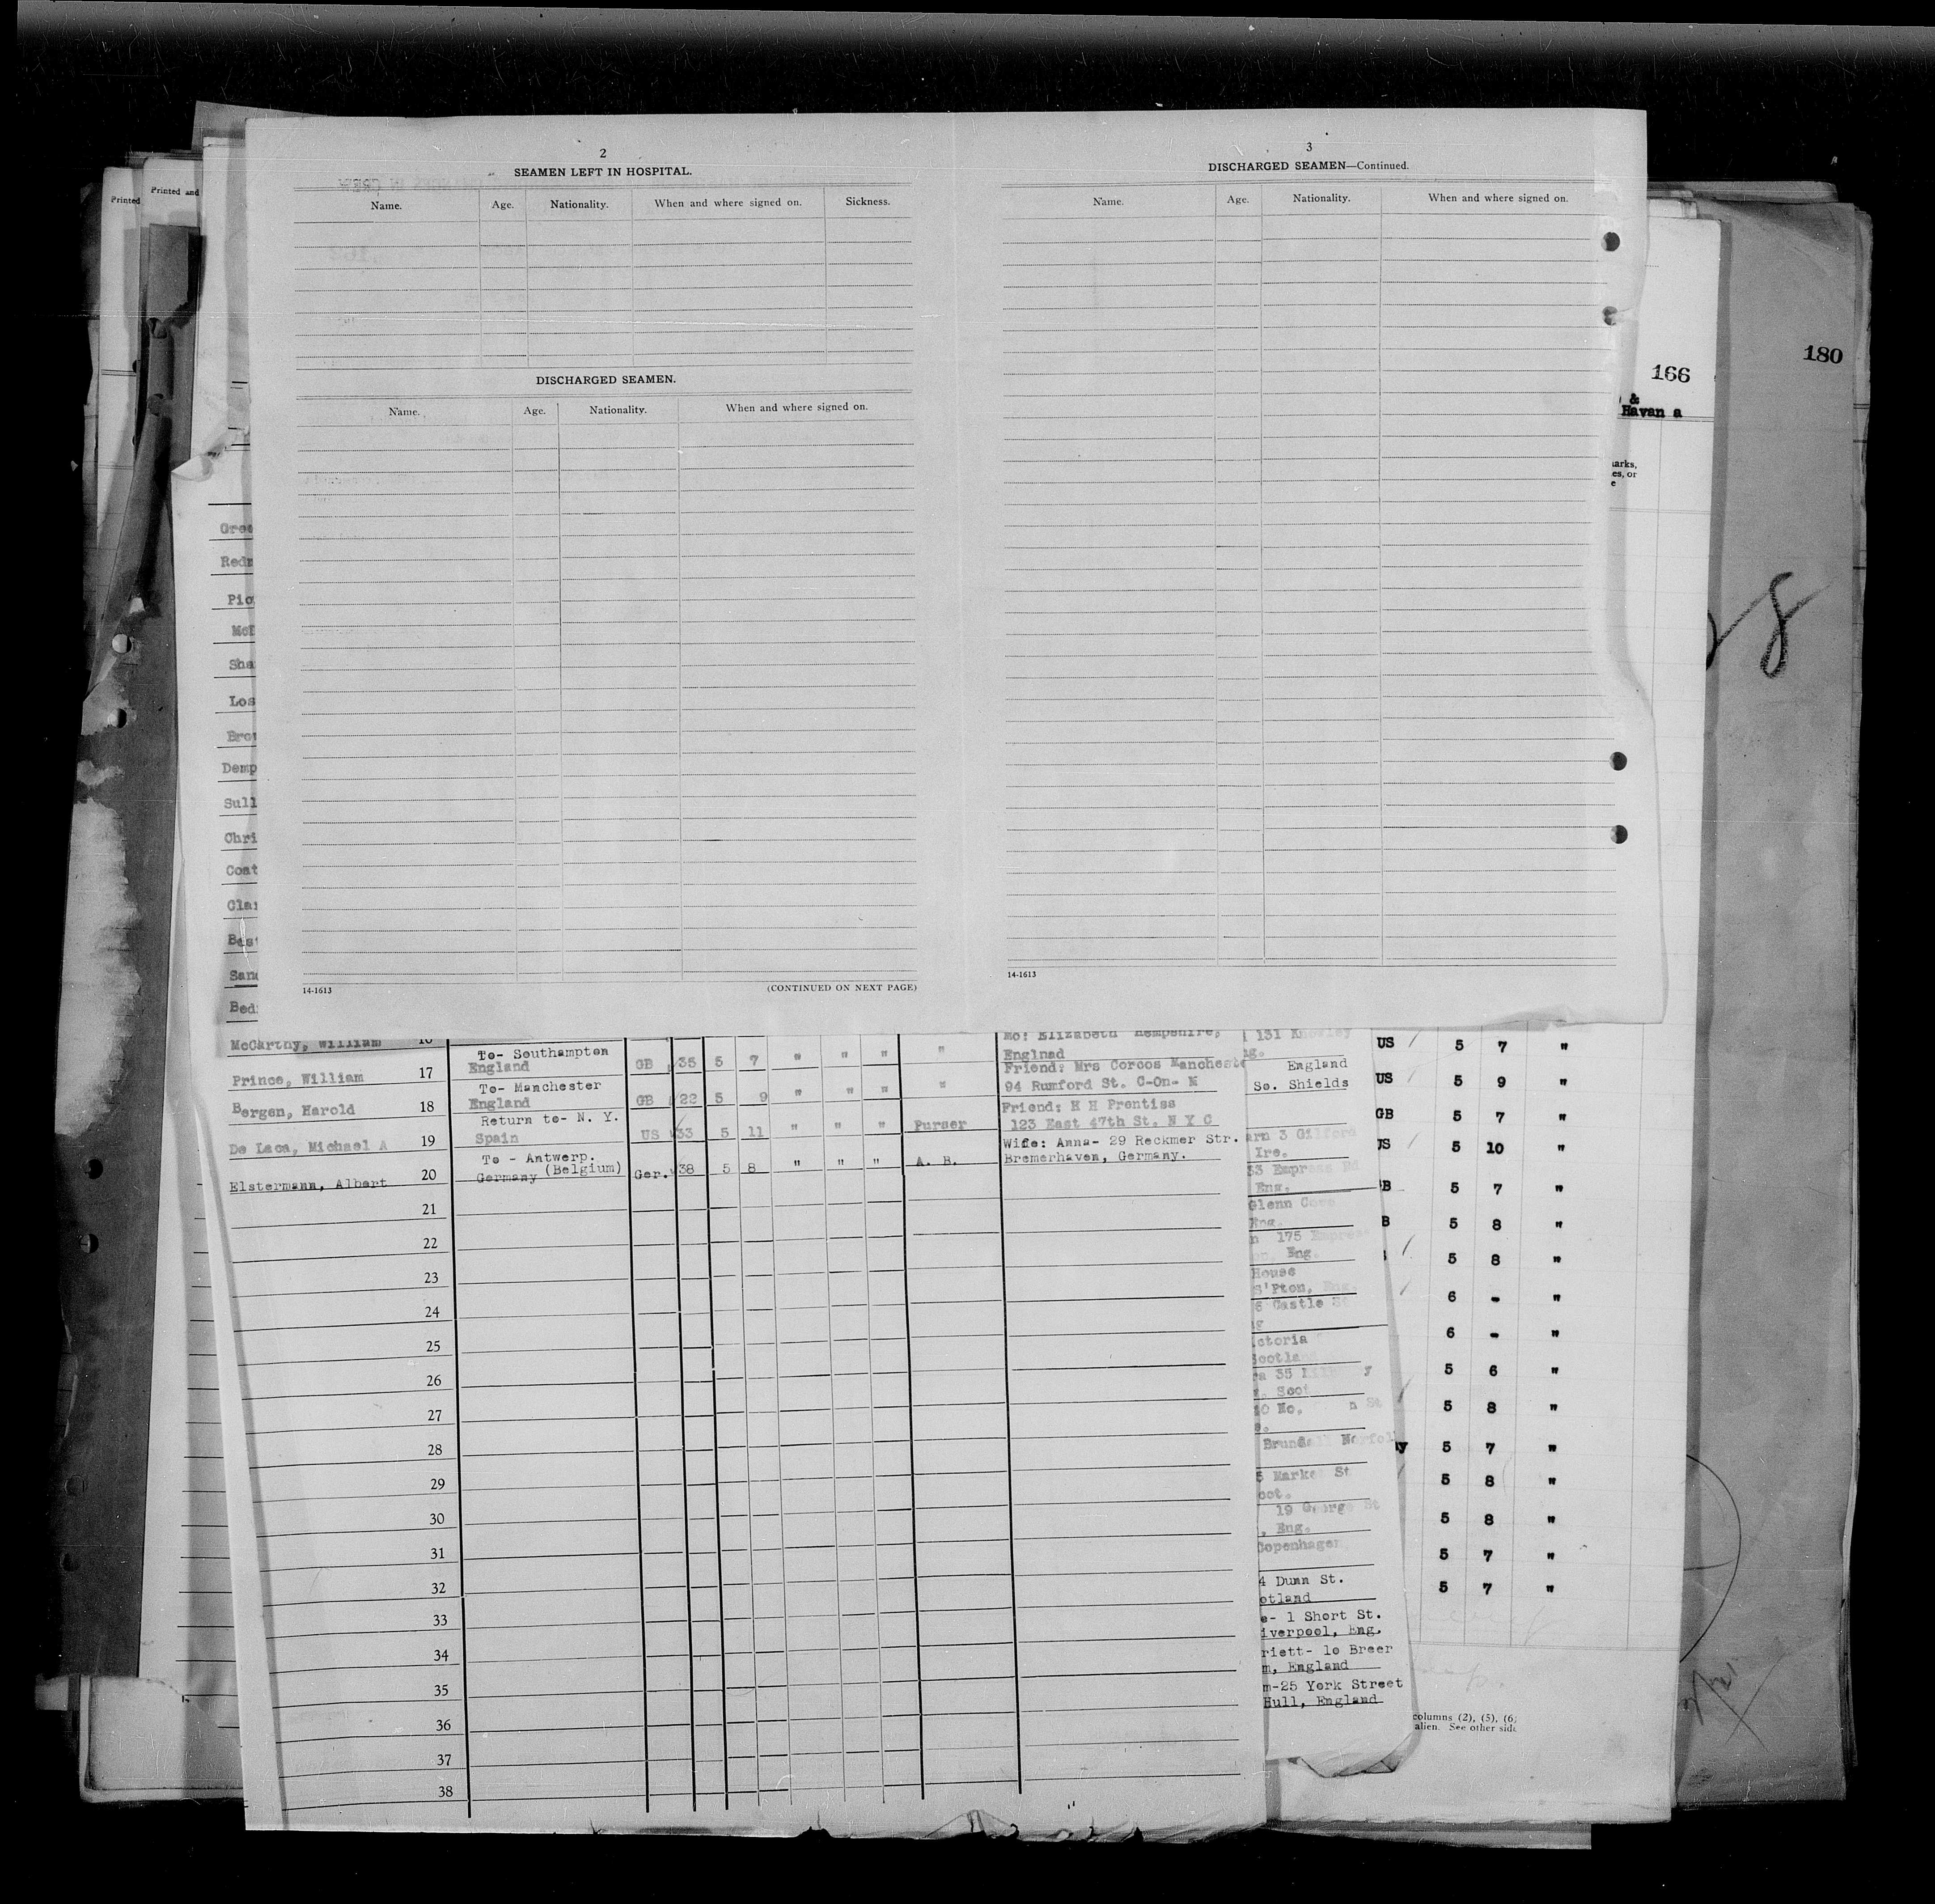 2
SEAMEN LEFT IN HOSPITAL.
Name. Age. Nationality. When and where signed on. Sickness.
DISCHARGED SEAMEN.
Name. Age. Nationality. When and where signed on.
14-1613
(CONTINUED ON NEXT PAGE)
3
DISCHARGED SEAMEN—Continued.
Name. Age. Nationality. When and where signed on.
14-1613
Printed
Printed and
180
166
&
Havan a
arks,
es, or
e
Gree
Redm
Pic
McD
Sha
Los
Brow
Demp
Sull
Chri
Coat
Clar
Best
Sand
Bed
McCarthy, William
Mo: Elizabeth Hempshire,
Englnad
Prince, William 17 To- Southampton
England GB 35 5 7 " " " "
Friend: Mrs Corcos Manchest
94 Rumford St. C-On- M
Bergen, Harold 18 To- Manchester
England GB 22 5 9 " " " "
Friend: K H Prentiss
123 East 47th St. N Y C
De Laca, Michael A 19 Return to- N. Y.
Spain US 33 5 11 " " " Purser
Wife: Anna- 29 Reckmer Str.
Bremerhaven, Germany.
Elstermann, Albert 20 To - Antwerp.
Germany (Belgium) Ger. 38 5 8 " " " A. B.
21
22
23
24
25
26
27
28
29
30
31
32
33
34
35
36
37
38
131 Knowsley
ng.
England
So. Shields
arn 3 Gilford
Ire.
33 Empress Rd
Eng.
Glenn Cove
Eng.
n 175 Empress
on, Eng.
House
S'Pton, Eng.
6 Castle St
ng
ctoria
Scotland
ra 35
, Scot
10 No. n St
s.
Brundall Norfolk
5 Market St
oot.
19 George St
, Eng.
Copenhagen
4 Dunn St.
otland
e- 1 Short St.
iverpool, Eng.
riett- 10 Breer
m, England
m-25 York Street
Hull, England
US 5 7 "
US 5 9 "
GB 5 7 "
US 5 10 "
B 5 7 "
B 5 8 "
5 8 "
6 - "
6 - "
5 6 "
5 8 "
y 5 7 "
5 8 "
5 8 "
5 7 "
5 7 "
columns (2), (5), (6)
alien. See other side